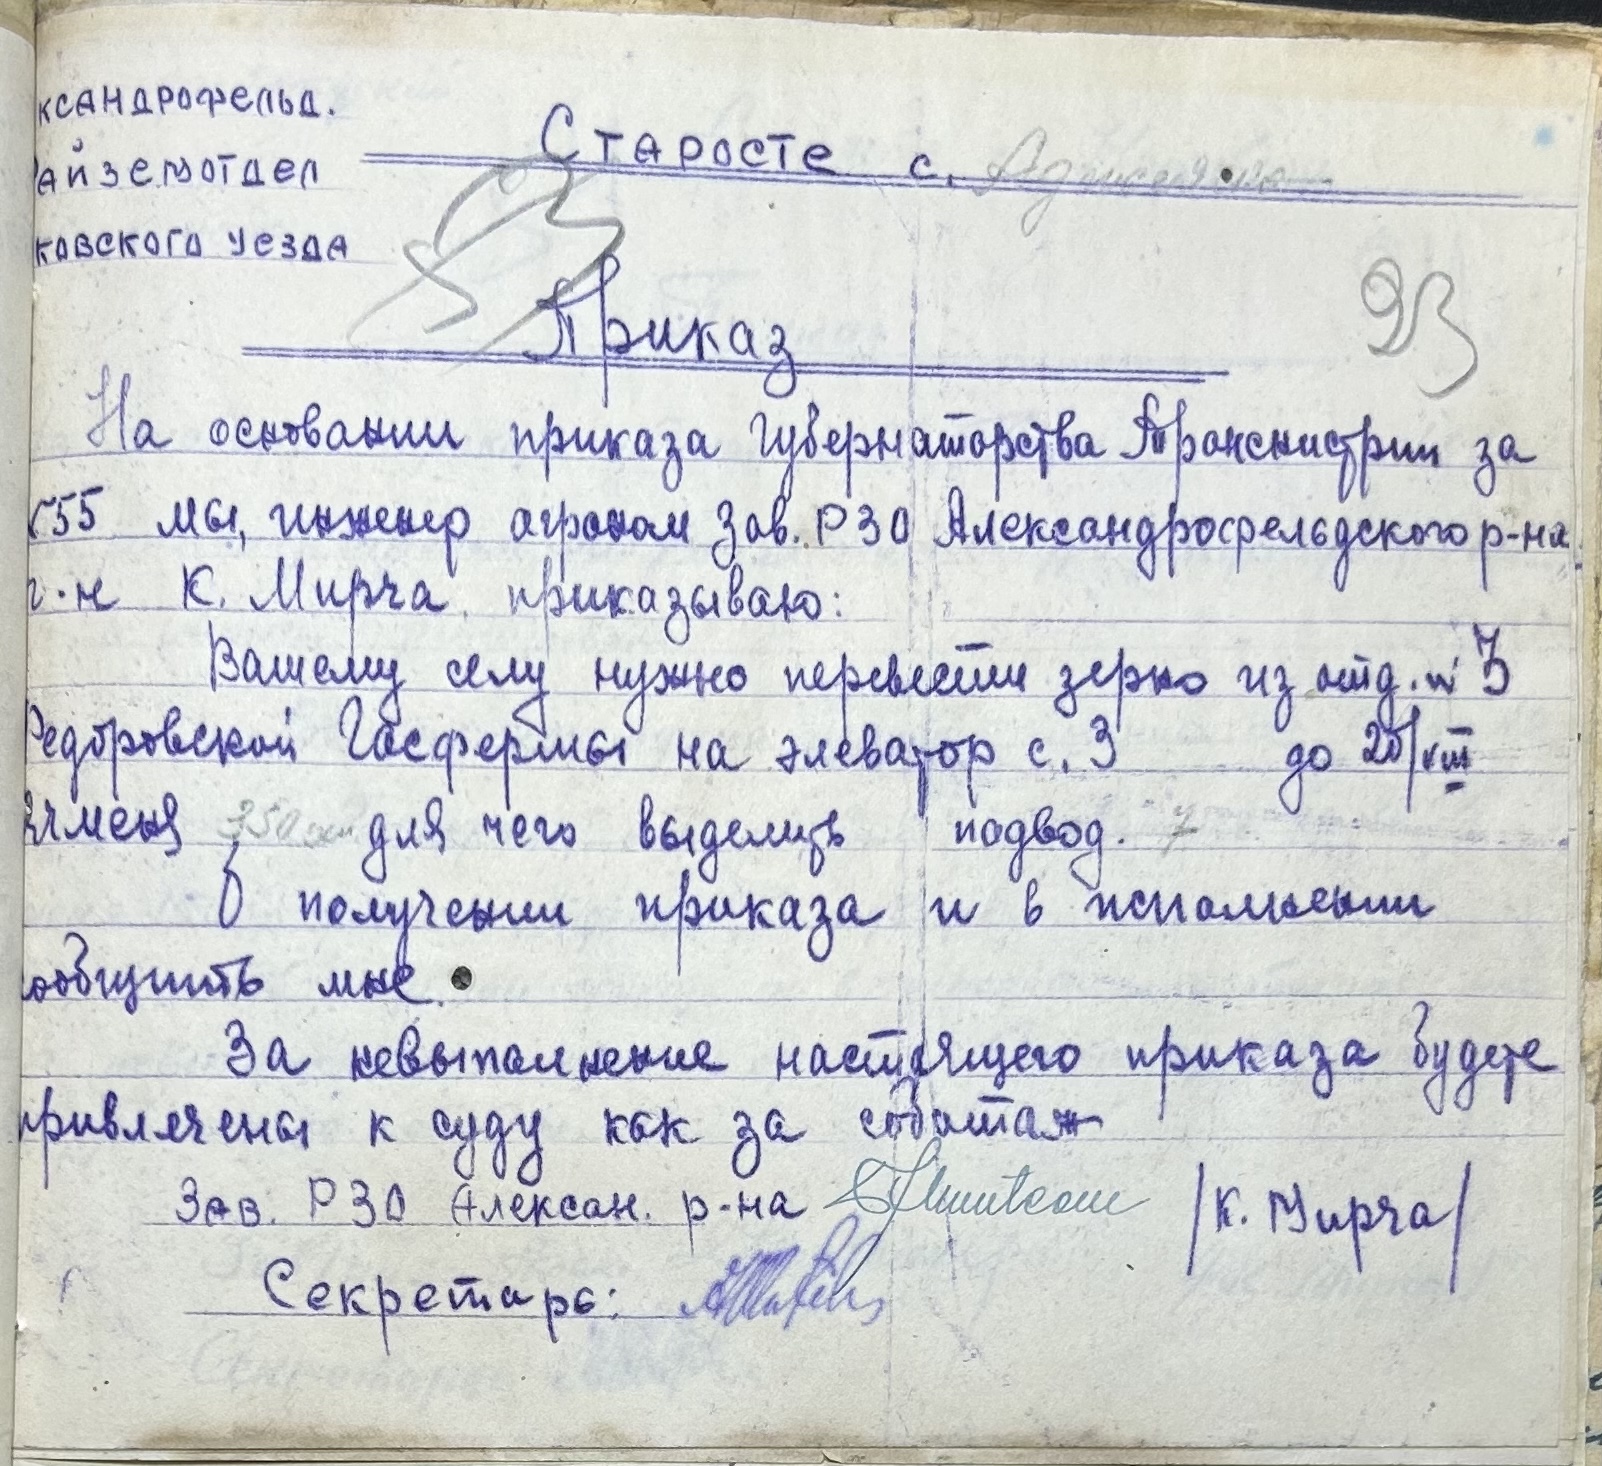 ксандрофельд.
Райземотдел
ковского уезда
Старосте с.
Приказ
23
На основании приказа Губернаторства Транснистрии за
№55 мы, инженер агроном Зав. РЗО Александрофельдского р-на
г-н К. Мирча приказываю:
Вашему селу нужно перевести зерно из отд. № 3
Федоровской Госфермы на элеватор с. З до 25/VIII
ячменя 350 для чего выделить подвод. 7
О получении приказа и в исполнении
сообщить мне.
За невыполнение настоящего приказа будете
привлечены к суду как за соботаж
Зав. РЗО Алексан. р-на /К. Мирча/
Секретарь: